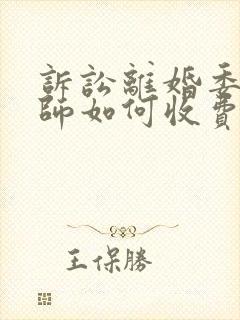 訴訟離婚委
師如何收費
王保勝